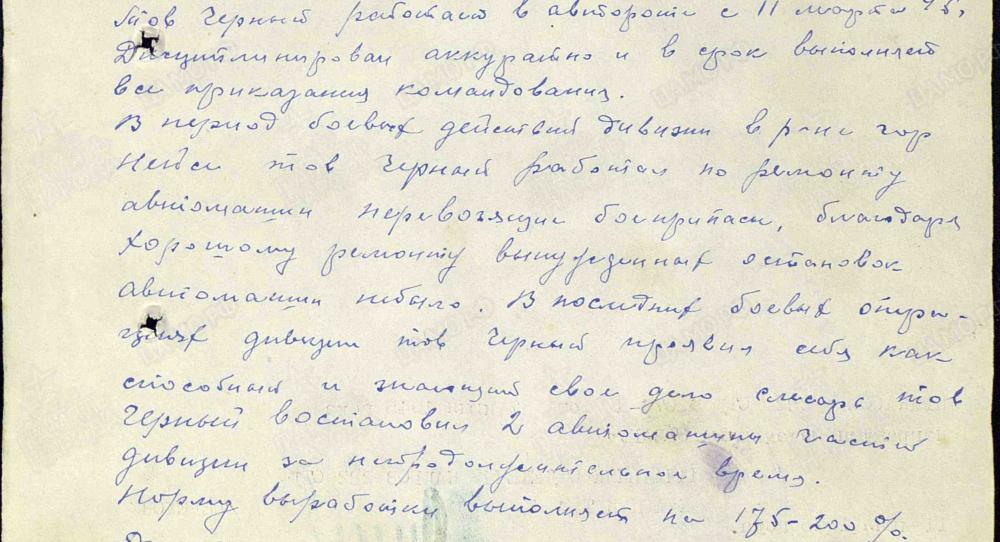 Тов Черный работает в автороте с 11 марта 45.
Дисциплинирован аккуратно и в срок выполняет
все приказания командования.
В период боевых действий дивизии в р-не гор
Нейсе тов Черный работал по ремонту
автомашин перевозящие боеприпасы, благодаря
хорошому ремонту вынужденных остановок
автомашин небыло. В последних боевых опера-
циях дивизии тов Черный проявил себя как
способный и знающий свое дело слесарь тов
Черный востановил 2 автомашины частей
дивизии за непродолжительное время.
Норму выработки выполняет на 175-200%.